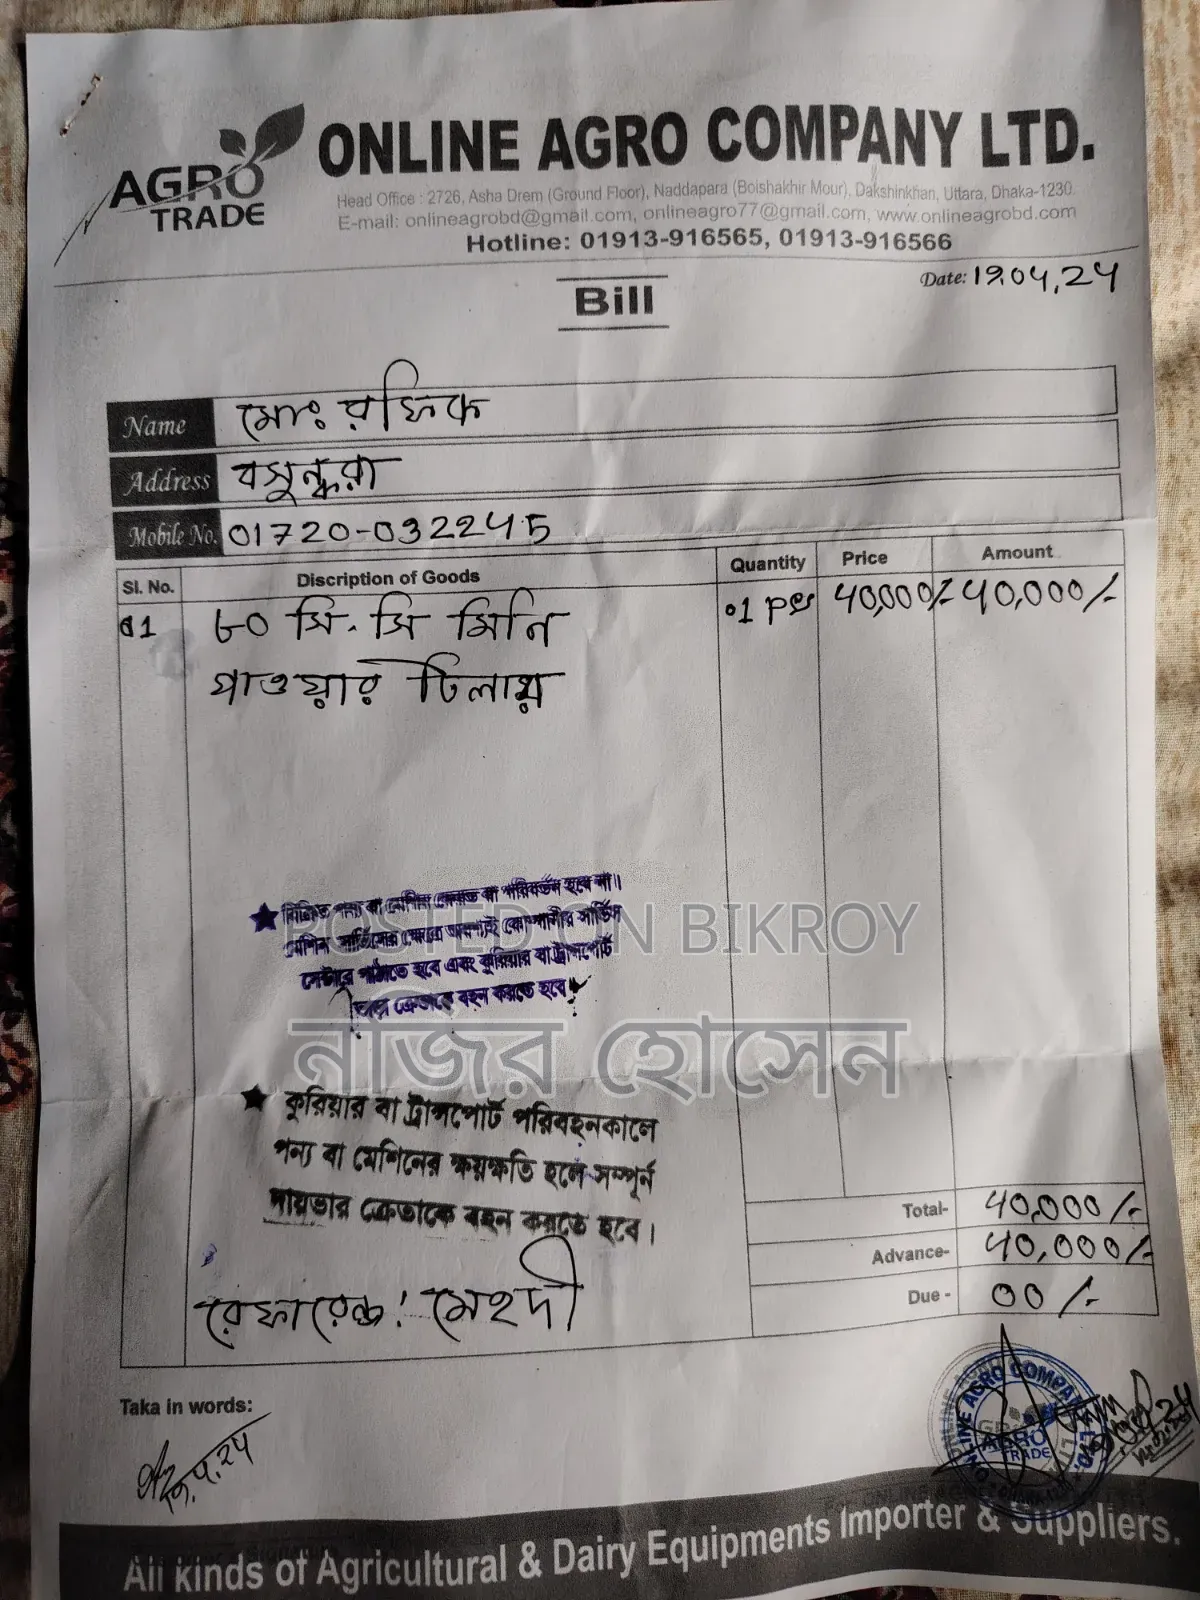 AGRO
TRADE
ONLINE AGRO COMPANY LTD.
Head Office : 2726, Asha Drem (Ground Floor), Naddapara (Boishakhir Mour), Dakshinkhan, Uttara, Dhaka-1230.
E-mail: onlineagrobd@gmail.com, onlineagro77@gmail.com, www.onlineagrobd.com
Hotline: 01913-916565, 01913-916566
Date: 19.04.24
Bill
Name মোঃ রফিক
Address বসুন্ধরা
Mobile No. 01720-032245
Sl. No. Discription of Goods Quantity Price Amount
01 ৮০ সি.সি মিনি 01 pcs 40,000/- 40,000/-
পাওয়ার টিলার
★ বিক্রিত পন্য বা মেশিন ফেরত বা পরিবর্তন হবে না।
মেশিন সার্ভিসের ক্ষেত্রে অবশ্যই কোম্পানীর সার্ভিস
সেন্টারে পাঠাতে হবে এবং কুরিয়ার বা ট্রান্সপোর্ট
ক্রেতাকে বহন করতে হবে।
POSTED ON BIKROY
নজির হোসেন
★ কুরিয়ার বা ট্রান্সপোর্ট পরিবহনকালে
পন্য বা মেশিনের ক্ষয়ক্ষতি হলে সম্পূর্ন
দায়ভার ক্রেতাকে বহন করতে হবে।
Total- 40,000/-
Advance- 40,000/-
Due - 00/-
রেফারেন্স: মেহদী
Taka in words:
ONLINE AGRO COMPANY LTD.
AGRO
TRADE
All kinds of Agricultural & Dairy Equipments Importer & Suppliers.